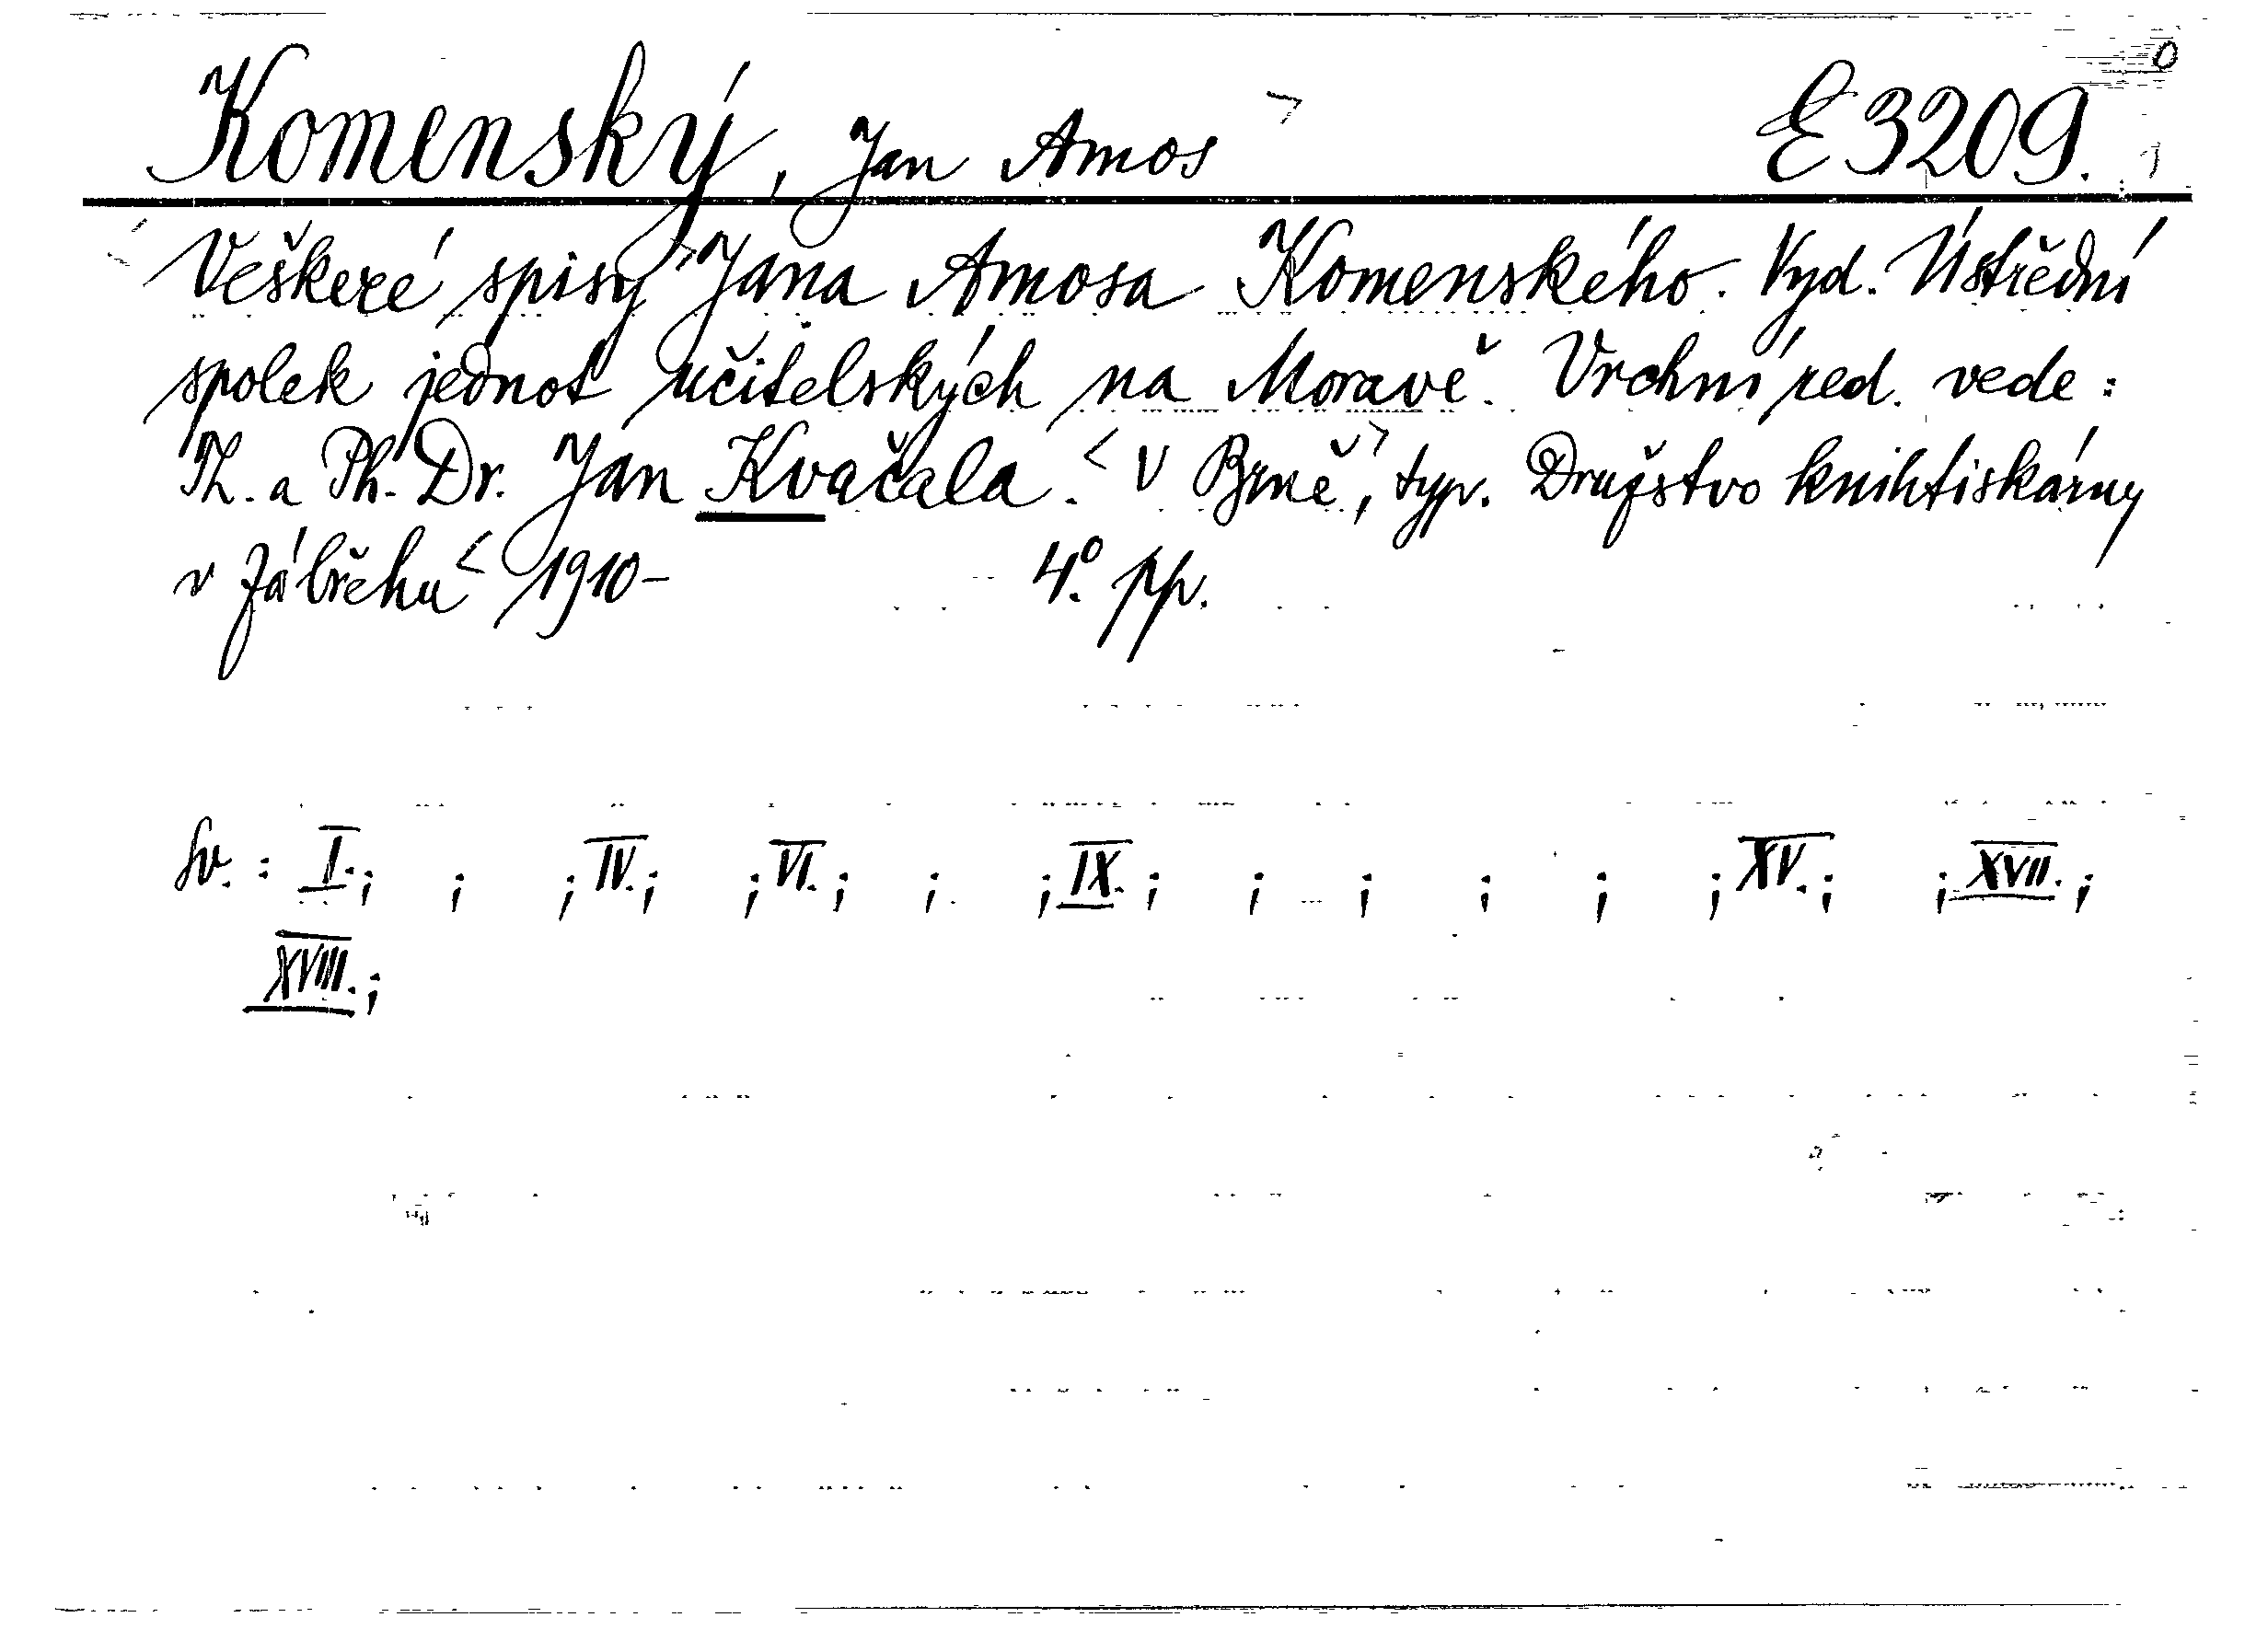 Komenský, Jan Amos E 3209.
Veškeré spisy Jana Amosa Komenského. Vyd. Ústřední
spolek jednot učitelských na Moravě. Vrchní red. vede:
Th. a Ph. Dr. Jan Kvačala. V Brně, typ. Družstvo knihtiskárny
v Zábřehu 1910- 4.° pp.
Sv.: I.; ; ; IV.; ; VI.; ; ; IX.; ; ; ; ; ; XV.; ; XVII.;
XVIII.;